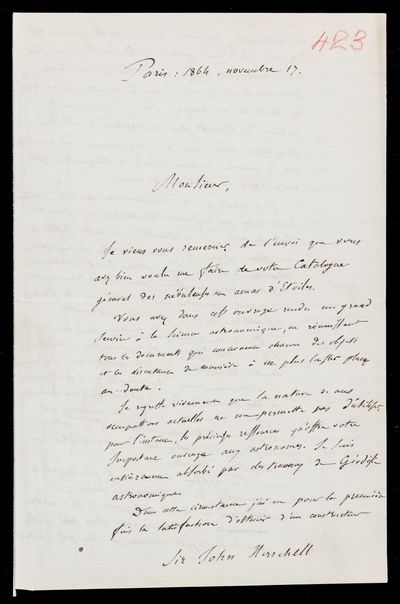 423
Paris : 1864 . novembre 17.
Monsieur,
Je viens vous remercier de l'envoi que vous
avez bien voulu me faire de votre Catalogue
général des nébuleuses en amas d'Etoiles.
Vous avez dans cet ouvrage rendu un grand
service à la Science astronomique, en réunissant
tous les documents qui concernent chacun des objets
et les discutant de manière à ne plus laisser place
au doute.
Je regrette vivement que la nature de mes
occupations actuelles ne me permette pas d'utiliser,
pour l'instant, les précieuses ressources qu'offre votre
important ouvrage aux astronomes. Je suis
entièrement absorbé par des travaux de Géodésie
astronomique.
Dans cette circonstance j'ai eu pour la première
fois la satisfaction d'obtenir d'un constructeur
Sir John Herschell